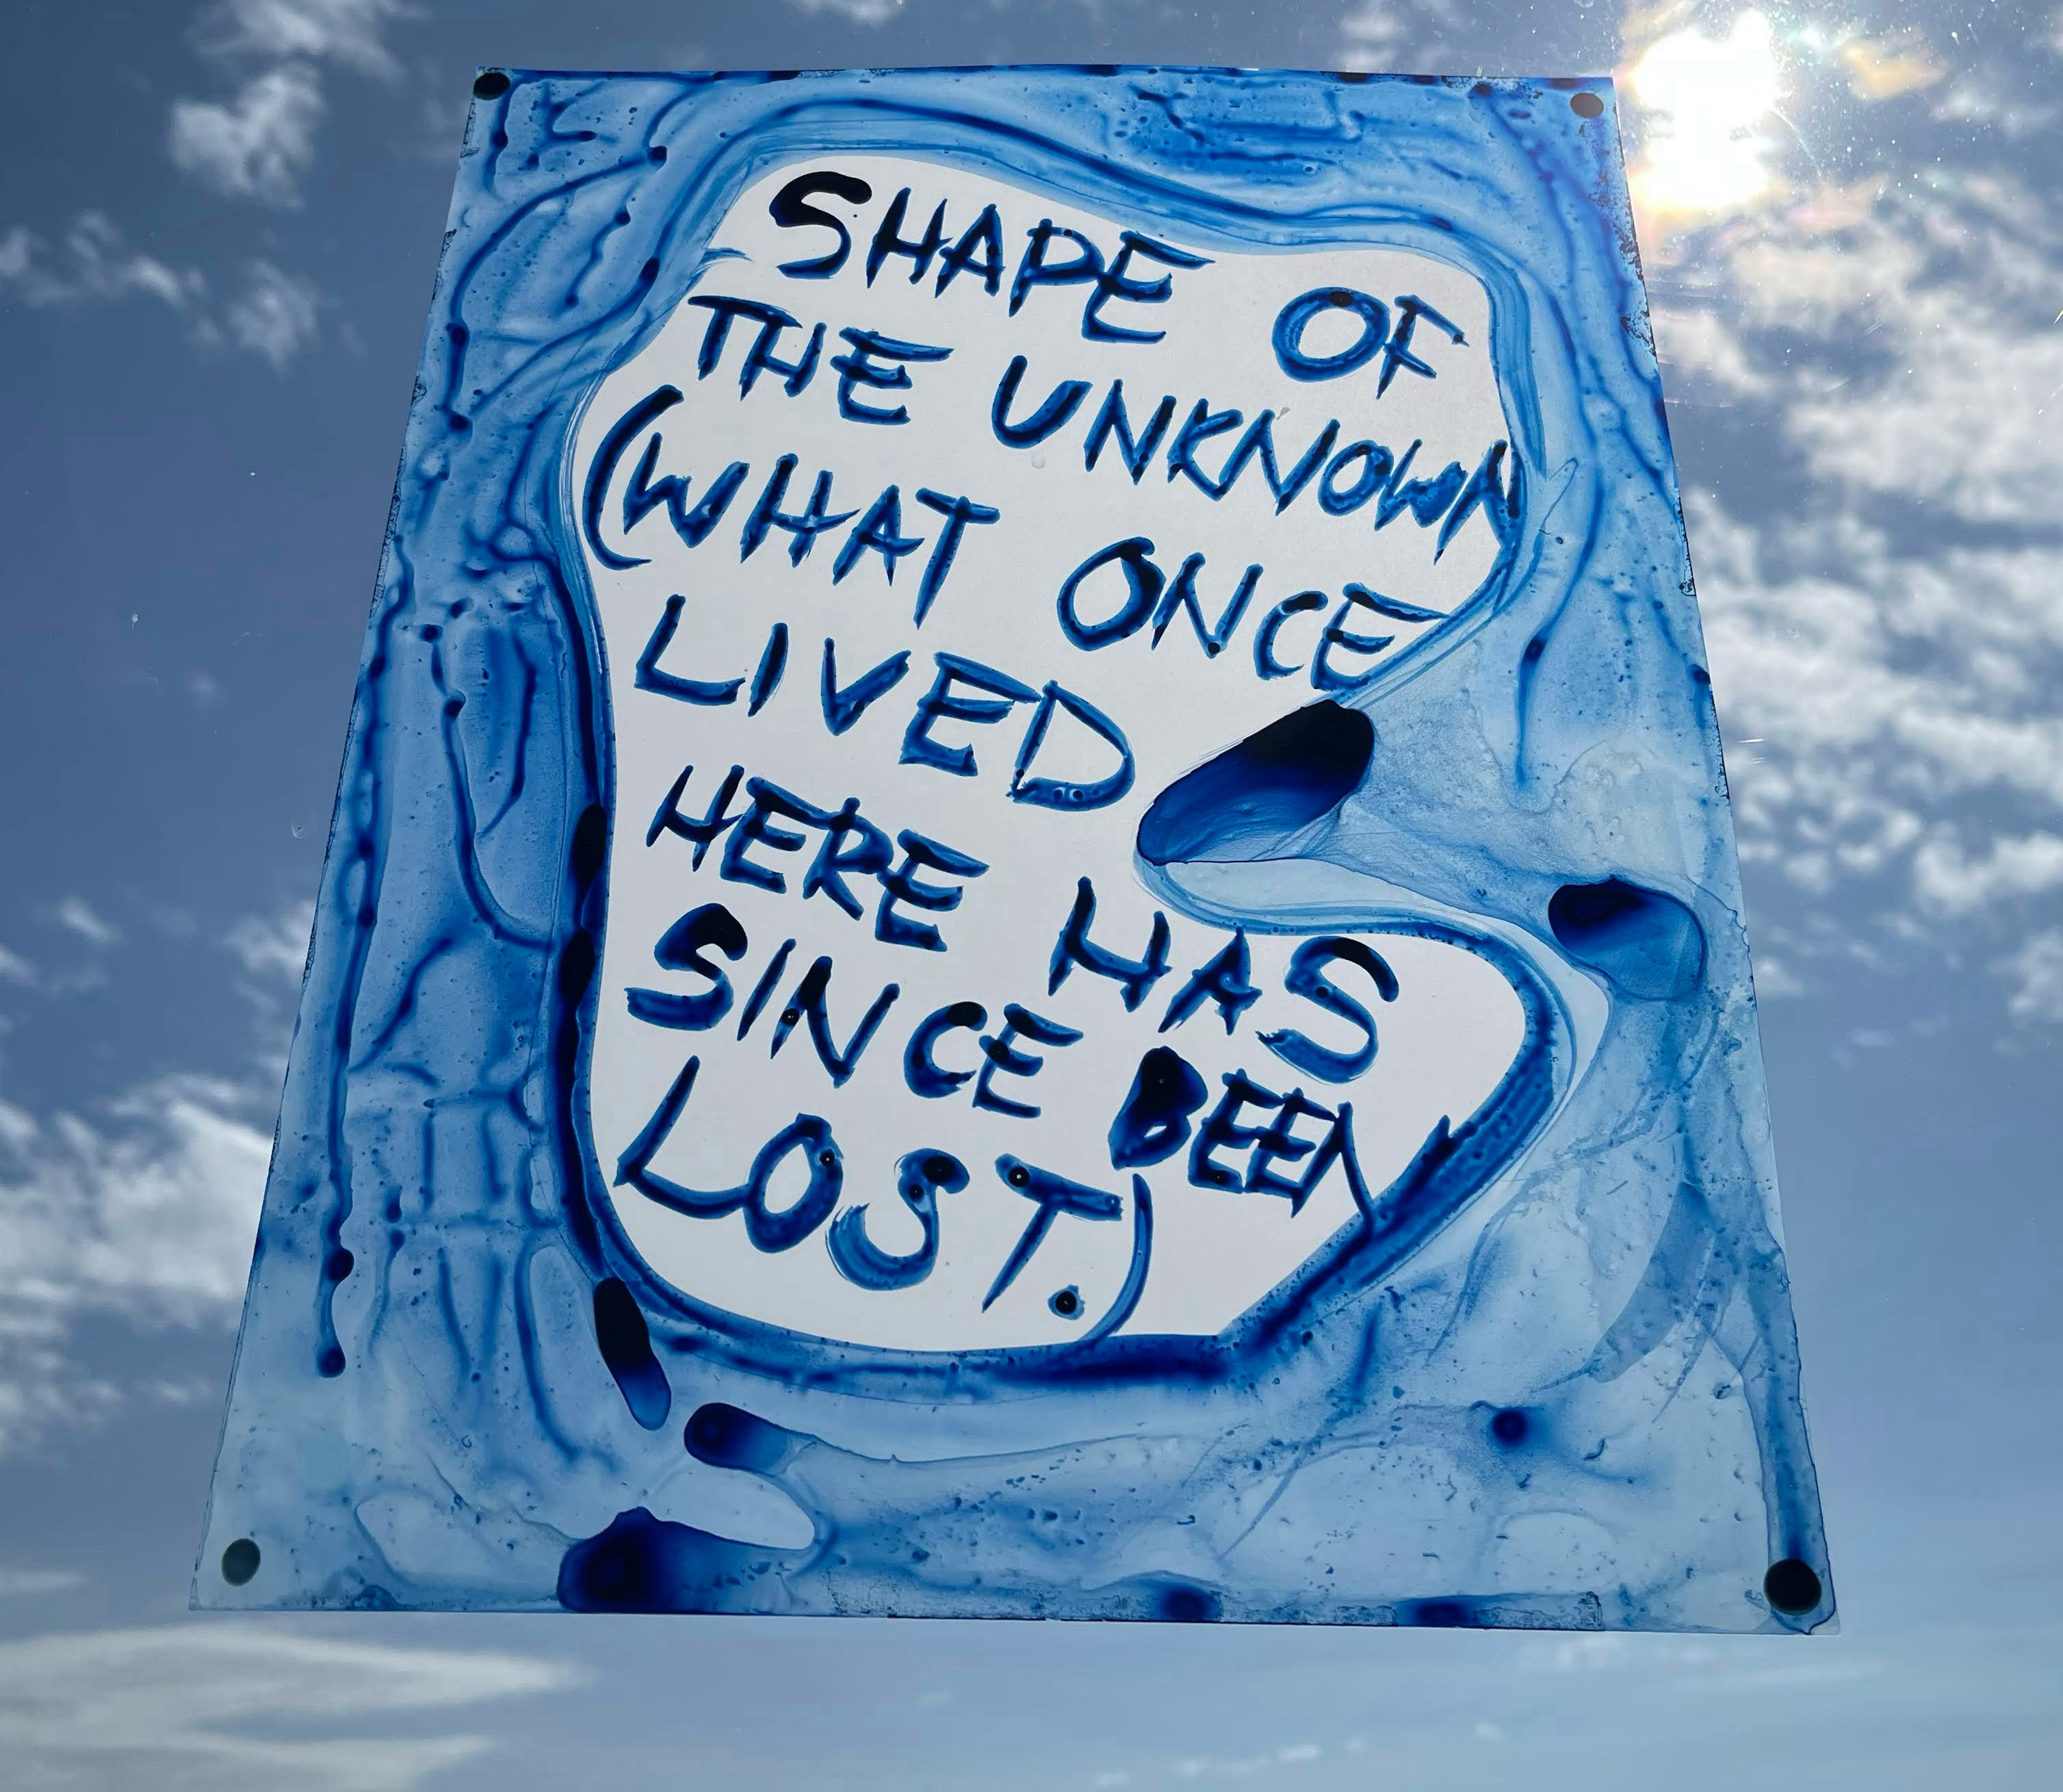 SHAPE OF
THE UNKNOWN
(WHAT ONCE
LIVED
HERE HAS
SINCE BEEN
LOST.)